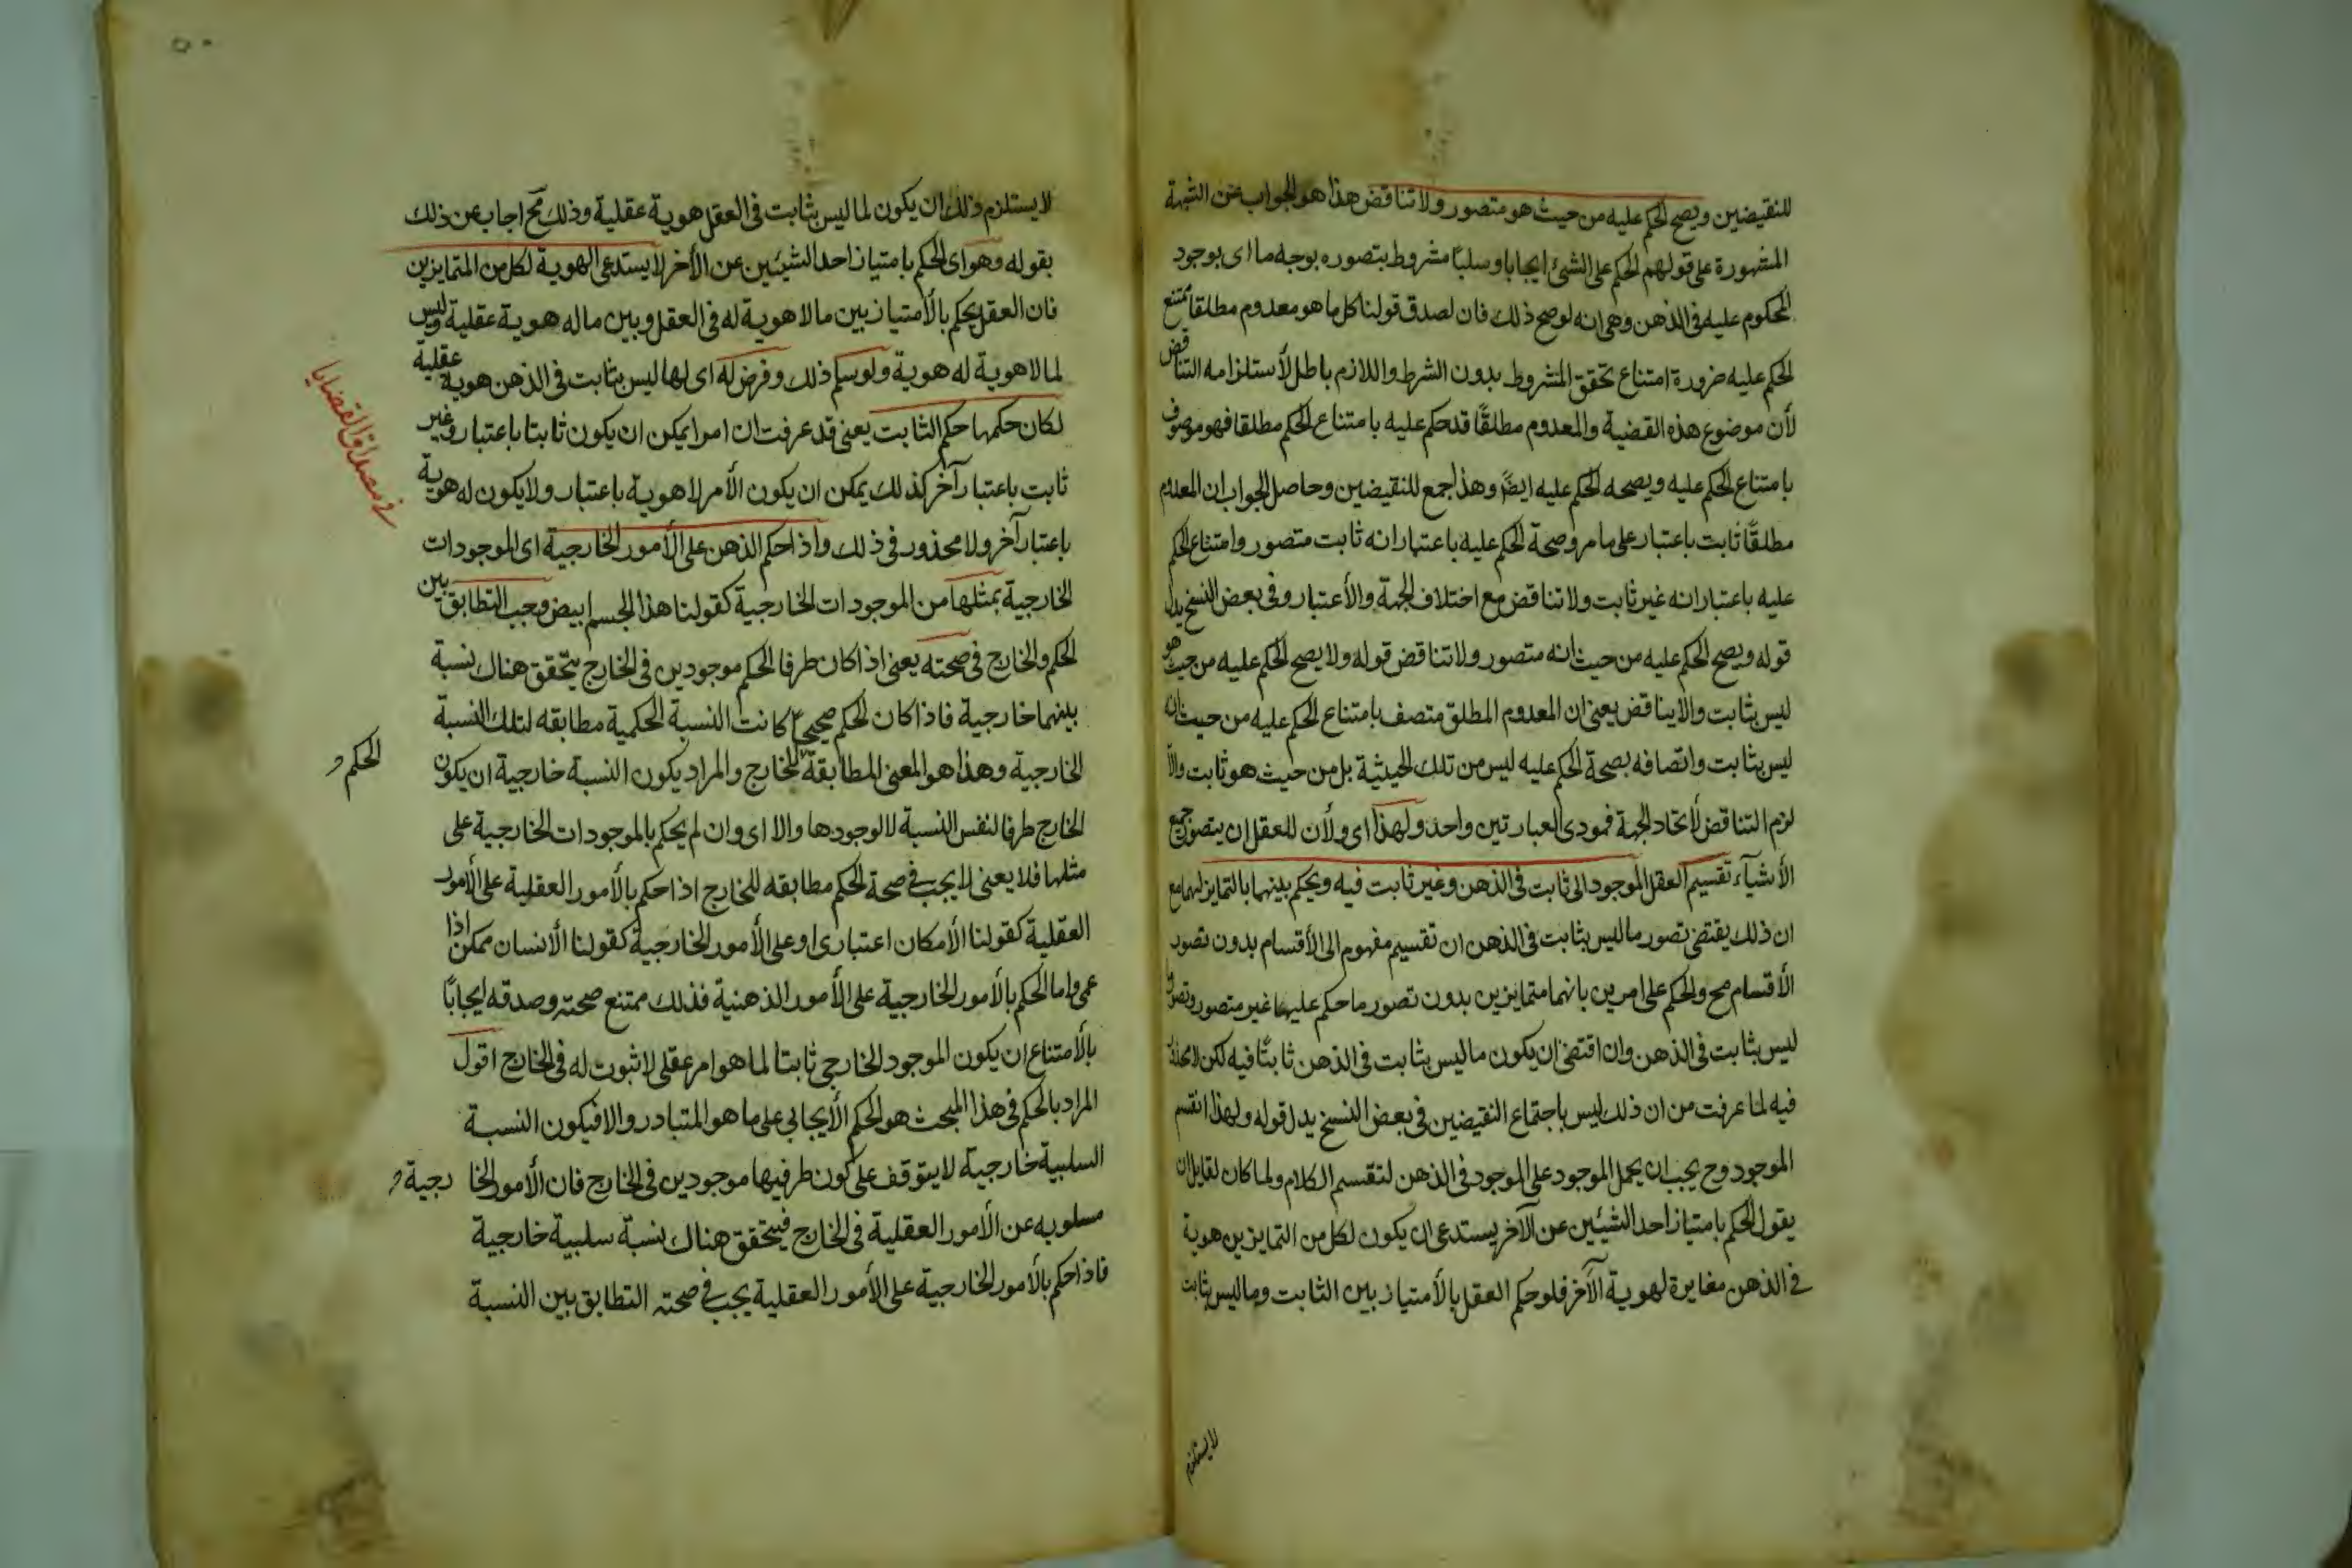 للنقيضين ويصح الحكم عليه من حيث هو متصور ولا تناقض هذا هو الجواب عن الشبهة
المشهورة على قولهم الحكم على الشئ ايجابا وسلبا مشروط بتصوره بوجه ما اى بوجود
المحكوم عليه فى الذهن وهى انه لو صح ذلك فان لصدق قولنا كل ما هو معدوم مطلقا يمتنع
الحكم عليه ضرورة امتناع تحقق المشروط بدون الشرط واللازم باطل لأستلزامه التناقض
لأن موضوع هذه القضية والمعدوم مطلقًا قد حكم عليه بامتناع الحكم مطلقا فهو موصوف
بامتناع الحكم عليه وبصحه الحكم عليه ايضًا وهذا جمع للنقيضين وحاصل الجواب ان المعدوم
مطلقًا ثابت باعتبار على ما مر وصحة الحكم عليه باعتبار انه ثابت متصور وامتناع الحكم
عليه باعتبار انه غير ثابت ولا تناقض مع اختلاف الجهة والأعتبار وفى بعض النسخ بدل
قوله ويصح الحكم عليه من حيث انه متصور ولا تناقض قوله ولا يصح الحكم عليه من حيث هو
ليس بثابت والا يناقض يعنى ان المعدوم المطلق متصف بامتناع الحكم عليه من حيث انه
ليس بثابت واتصافه بصحة الحكم عليه ليس من تلك الحيثية بل من حيث هو ثابت والّا
لزم التناقض لأتحاد الجهة فمودى العبارتين واحد ولهذا اى ولأن للعقل ان يتصور جميع
الأشيآء تقسيم العقل الموجود الى ثابت فى الذهن وغير ثابت فيه ويحكم بينهما بالتمايز لهما مع
ان ذلك يقتضى تصور ما ليس بثابت فى الذهن ان تقسيم مفهوم الى الأقسام بدون تصور
الأقسام مح والحكم على امرين بانهما متمايزين بدون تصور ما حكم عليهما غير متصور وتصور
ليس بثابت فى الذهن وان اقتضى ان يكون ما ليس بثابت فى الذهن ثابتًا فيه لكن لا محذور
فيه لما عرفت من ان ذلك ليس باجتماع النقيضين فى بعض النسخ بدل قوله ولهذا انقسم
الموجود وح يجب ان يحمل الموجود على الموجود فى الذهن لتقسيم الكلام ولما كان لقايل ان
يقول الحكم بامتياز احد الشيئين عن الآخر يستدعى ان يكون لكل من التمايزين هوية
فى الذهن مغايرة لهوية الآخر فلو حكم العقل بالأمتياز بين الثابت وما ليس بثابت
لا يستلزم
لا يستلزم ذلك ان يكون لما ليس بثابت فى العقل هوية عقلية وذلك مح اجاب عن ذلك
بقوله وهو اى الحكم بامتياز احد الشيئين عن الأخر لا يستدعى الهوية لكل من المتمايزين
فان العقل يحكم بالأمتياز بين ما لا هوية له فى العقل وبين ما له هوية عقلية وليس
لما لا هوية له هوية ولو سلم ذلك وفرض له اى لها ليس بثابت فى الذهن هوية عقلية
لكان حكمها حكم الثابت يعنى قد عرفت ان امرا يمكن ان يكون ثابتا باعتبار وغير
ثابت باعتبار آخر كذلك يمكن ان يكون الأمر لا هوية باعتبار ولا يكون له هوية
باعتبار آخر ولا محذور فى ذلك واذا حكم الذهن على الأمور الخارجية اى الموجودات
الخارجية بمثلها من الموجودات الخارجية كقولنا هذا الجسم ابيض وجب التطابق بين
الحكم والخارج فى صحته يعنى اذا كان طرفا الحكم موجودين فى الخارج يتحقق هناك نسبة
بينهما خارجية فاذا كان الحكم صحيحًا كانت النسبة الحكمية مطابقه لتلك النسبة
الخارجية وهذا هو المعنى للمطابقة للخارج والمراد يكون النسبة خارجية ان يكون
الخارج طرفا لنفس النسبة لا لوجودها والا اى وان لم يحكم بالموجودات الخارجية على
مثلها فلا يعنى لا يجب فى صحة الحكم مطابقه للخارج اذا حكم بالأمور العقلية على الأمور
العقلية كقولنا الأمكان اعتبارى او على الأمور الخارجية كقولنا الأنسان ممكن اذا
عمى واما الحكم بالأمور الخارجية على الأمور الذهنية فذلك ممتنع صحته وصدقه ايجابًا
بالأمتناع ان يكون الموجود الخارجى ثابتا لما هو امر عقلى لا ثبوت له فى الخارج اقول
المراد بالحكم فى هذا المبحث هو الحكم الأيجابي على ما هو المتبادر والا فيكون النسبة
السلبية خارجية لا يتوقف على كون طرفيها موجودين فى الخارج فان الأمور الخارجية
مسلوبه عن الأمور العقلية فى الخارج فيتحقق هناك نسبة سلبية خارجية
فاذا حكم بالأمور الخارجية على الأمور العقلية يجب فى صحته التطابق بين النسبة
فى مصداق القضايا
الحكم و